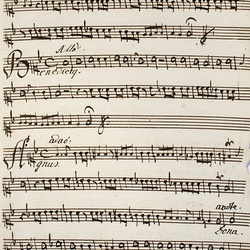 All:
Benedictq.
adaō
Agnus.
andte.
Dona.